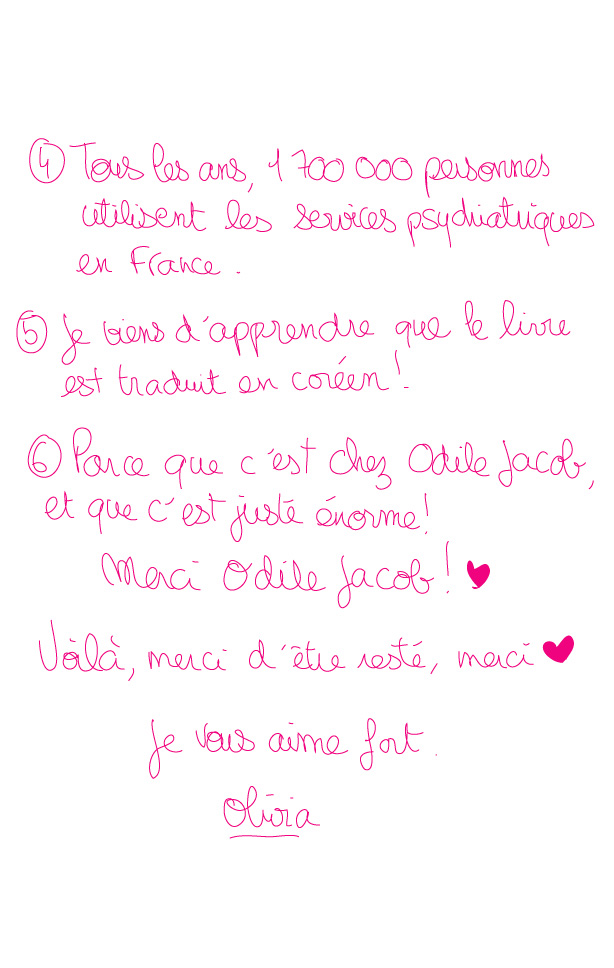 ④ Tous les ans, 1 700 000 personnes
utilisent les services psychiatriques
en France.
⑤ Je viens d'apprendre que le livre
est traduit en coréen !
⑥ Parce que c'est chez Odile Jacob,
et que c'est juste énorme !
Merci Odile Jacob ! ♥
Voilà, merci d'être resté, merci ♥
Je vous aime fort.
Olivia